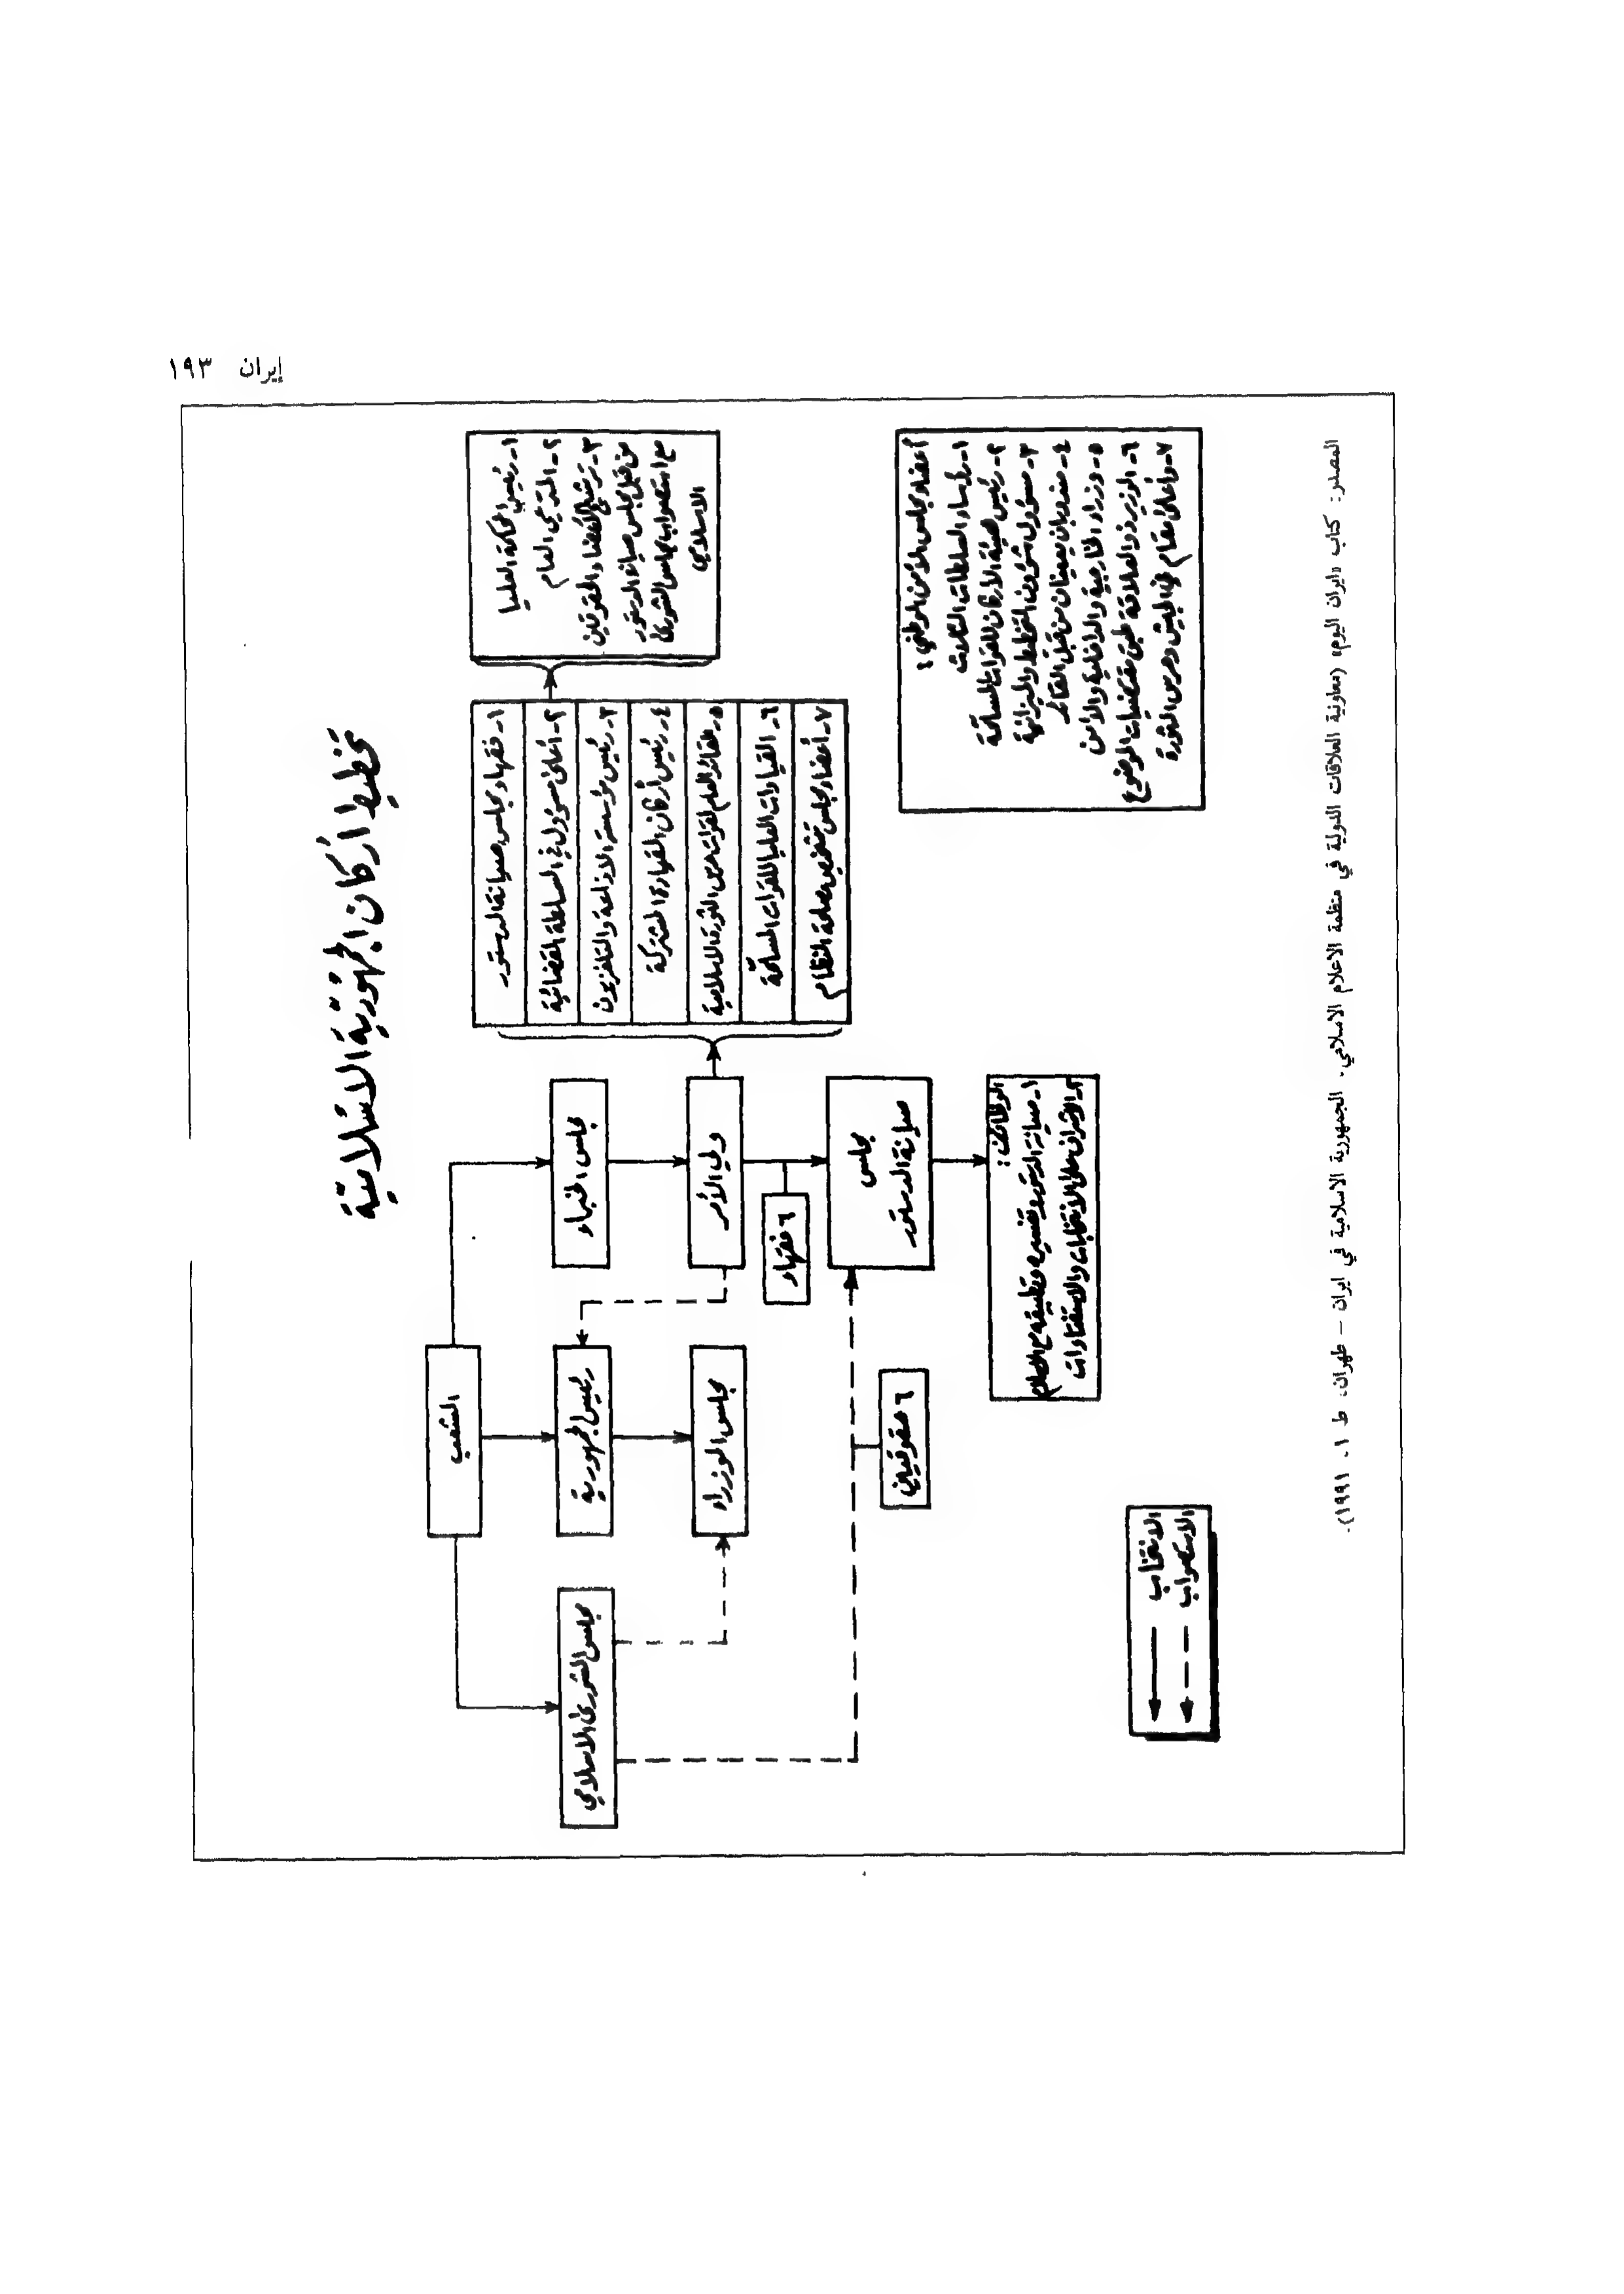 إيران ١٩٣
تخطيط أركان الجمهورية الاسلامية
الشعب
مجلس الخبراء
رئيس الجمهورية
مجلس الشورى الاسلامي
ولي الأمر
مجلس الوزراء
٦ فقهاء
مجلس
صيانة الدستور
٦ حقوقيين
الوظائف :
١- صيانة الدستور وتفسيره وتطبيقه مع الاسلام
٢- الاشراف على الانتخابات والاستفتاءات
١- فقهاء مجلس صيانة الدستور
٢- أعلى مسؤول في السلطة القضائية
٣- رئيس مؤسسة الاذاعة والتلفزيون
٤- رئيس أركان القيادة المشتركة
٥- القائد العام لقوات حرس الثورة الاسلامية
٦- القيادات العليا للقوات المسلحة
٧- أعضاء مجلس تشخيص مصلحة النظام
١- رئيس المحكمة العليا
٢- المدعي العام
٣- ترشيح الأعضاء الحقوقيين
من قبل مجلس صيانة الدستور
مع استصواب مجلس الشورى
الاسلامي
أعضاء مجلس الأمن الوطني :
١- رؤساء السلطات الثلاث
٢- رئيس هيئة الأركان للقوات المسلحة
٣- مسؤول شؤون التخطيط والميزانية
٤- مندوبان يعينان من قبل القائد
٥- وزراء الخارجية والداخلية والأمن
٦- الوزير ذو العلاقة طبق مقتضيات الموضوع
٧- وأعلى مقام في الجيش وحرس الثورة
الانتخاب
الاستصواب
المصدر: كتاب «ايران اليوم» (معاونية العلاقات الدولية في منظمة الاعلام الاسلامي. الجمهورية الاسلامية في ايران – طهران. ط ١. ١٩٩١).